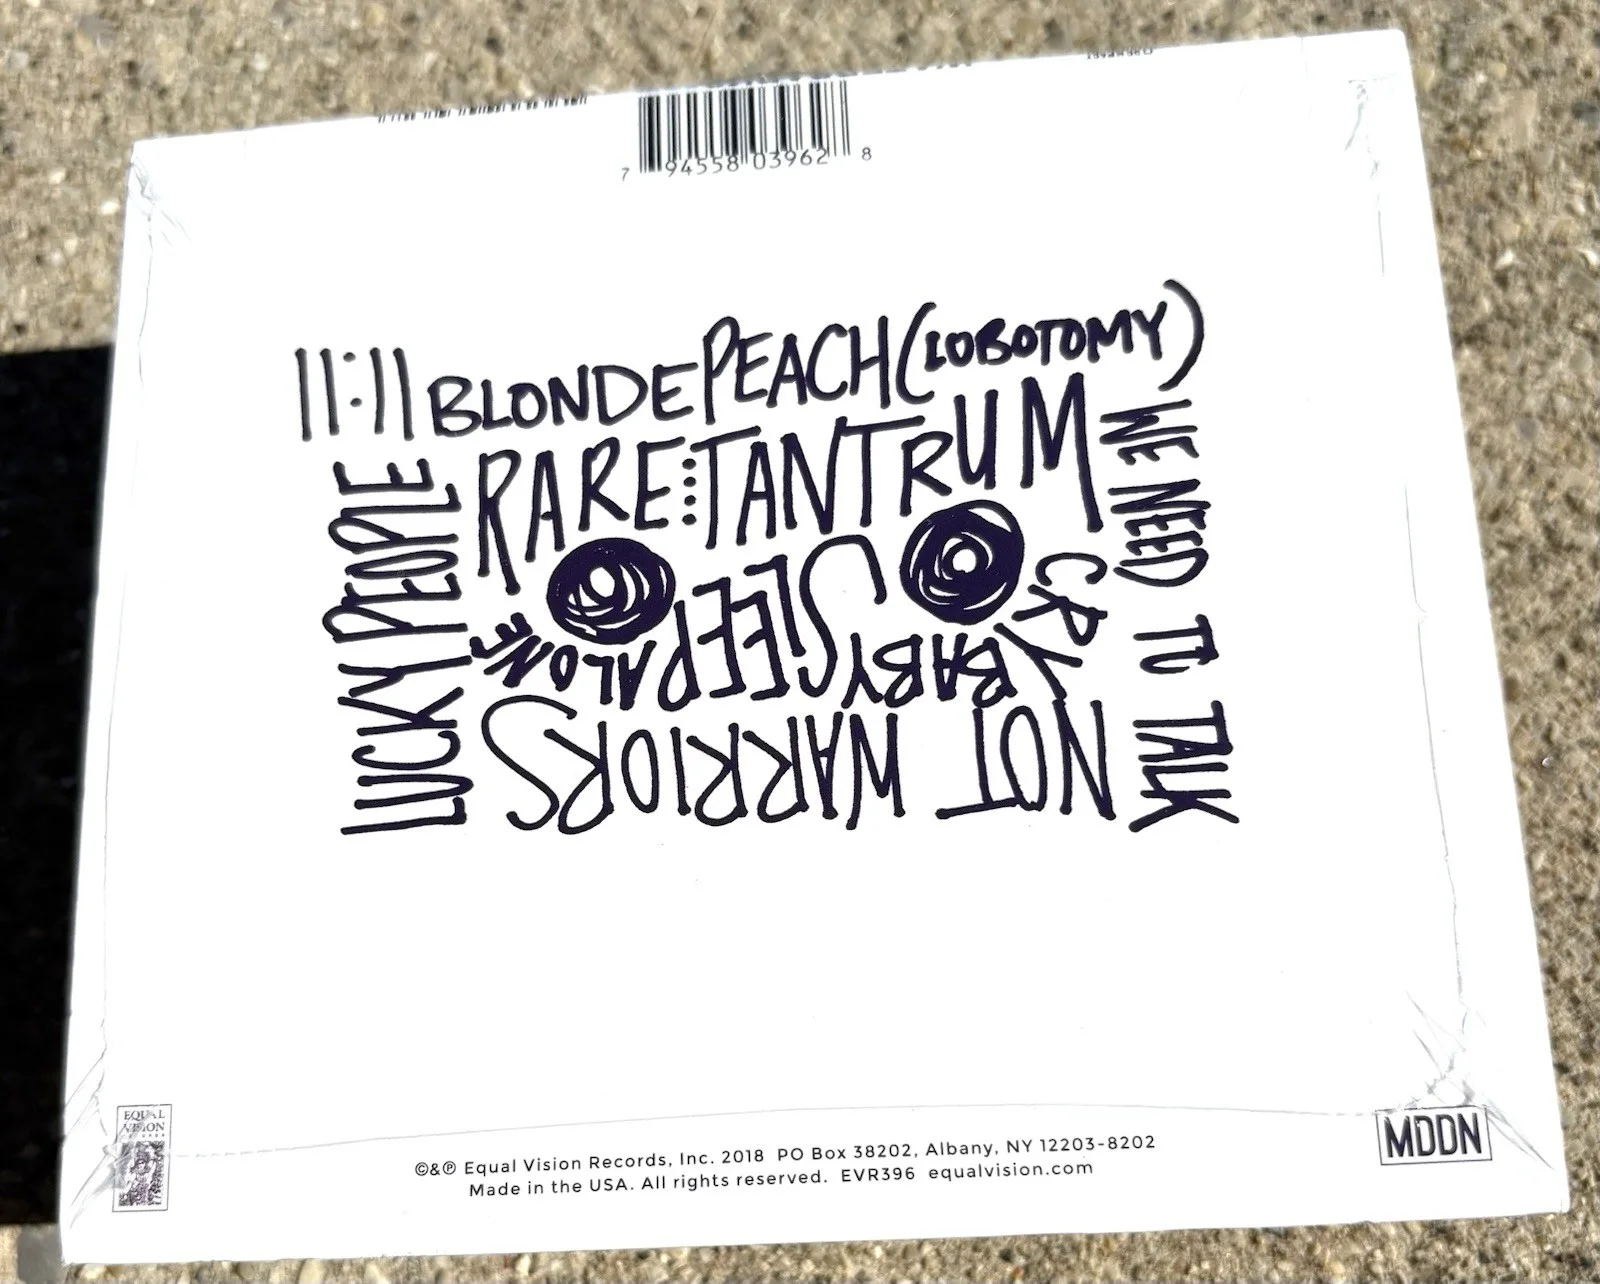 7 94558 03962 8
11:11 BLONDE PEACH (LOBOTOMY)
RARE....TANTRUM
WE NEED TO TALK
LUCKY PEOPLE
CRY BABY
SLEEP ALONE
NOT WARRIORS
EQUAL
VISION
MDDN
©&℗ Equal Vision Records, Inc. 2018 PO Box 38202, Albany, NY 12203-8202
Made in the USA. All rights reserved. EVR396 equalvision.com